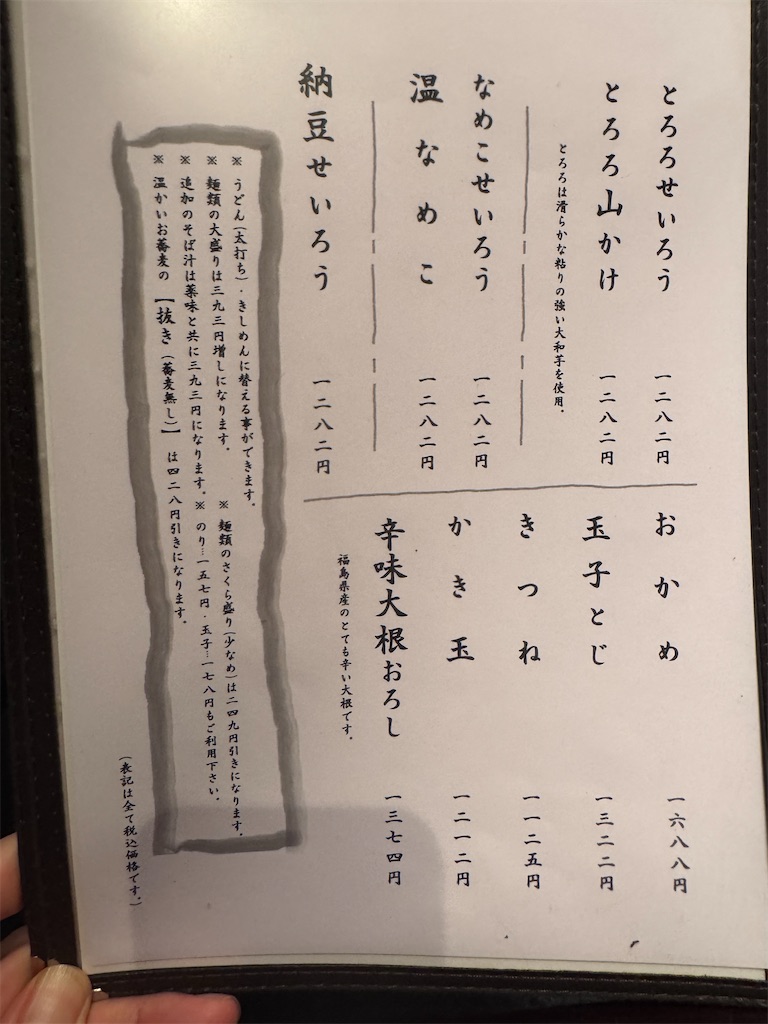 とろろせいろう 一二八二円
とろろ山かけ 一二八二円
とろろは滑らかな粘りの強い大和芋を使用。
なめこせいろう 一二八二円
温なめこ 一二八二円
納豆せいろう 一二八二円
おかめ 一六八八円
玉子とじ 一三二二円
きつね 一一二五円
かき玉 一二一二円
辛味大根おろし 一三七四円
福島県産のとても辛い大根です。
※うどん(太打ち)・きしめんに替える事ができます。
※麺類の大盛りは三九三円増しになります。
※麺類のさくら盛り(少なめ)は二四九円引きになります。
※追加のそば汁は薬味と共に三九三円になります。
※のり…一五七円・玉子…一七八円もご利用下さい。
※温かいお蕎麦の【抜き(蕎麦無し)】は四二八円引きになります。
(表記は全て税込価格です。)